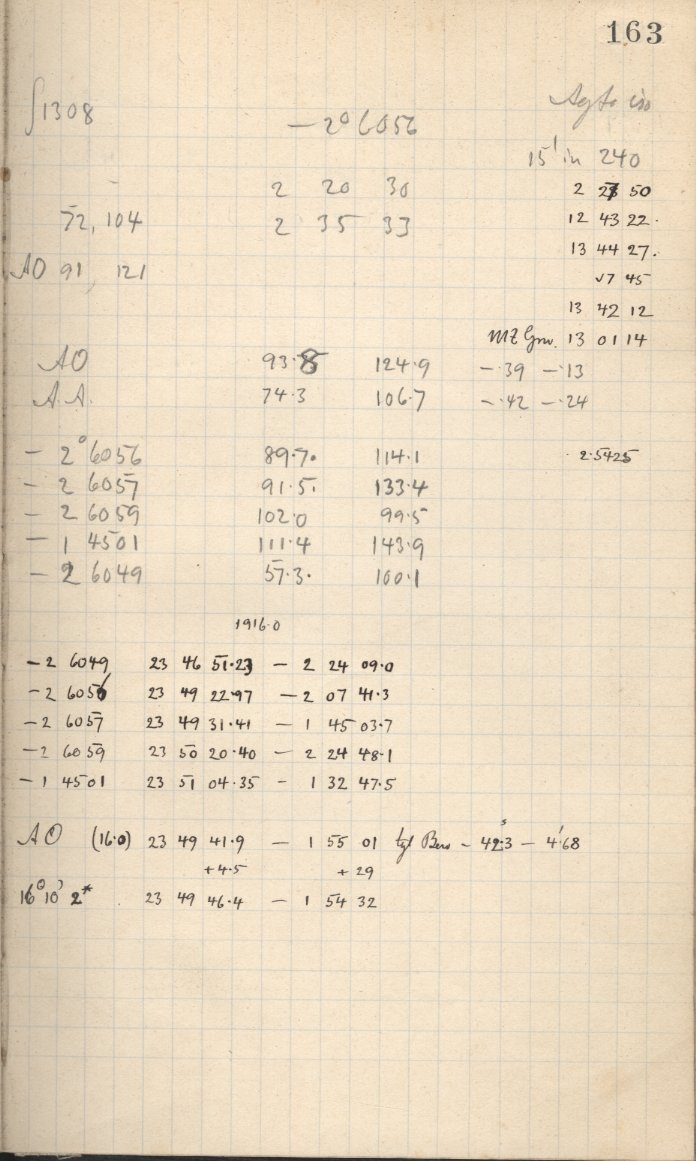 163
∫1308 - 2° 6056
15' in 240
2 20 30 2 27 50
72, 104 2 35 33 12 43 22.
13 44 27.
AO 91, 121 √7 45
13 42 12
MZ Grw. 13 01 14
AO 93.8 124.9 -.39 -.13
A.A. 74.3 106.7 -.42 -.24
- 2° 6056 89.7. 114.1 2.5425
- 2 6057 91.5. 133.4
- 2 6059 102.0 99.5
- 1 4501 111.4 143.9
- 2 6049 57.3. 100.1
1916.0
- 2 6049 23 46 51.23 - 2 24 09.0
- 2 6056 23 49 22.97 - 2 07 41.3
- 2 6057 23 49 31.41 - 1 45 03.7
- 2 6059 23 50 20.40 - 2 24 48.1
- 1 4501 23 51 04.35 - 1 32 47.5
AO (16.0) 23 49 41.9 - 1 55 01 Bero - 42.3ˢ - 4'.68
+4.5 + 29
16° 10' 2* 23 49 46.4 - 1 54 32